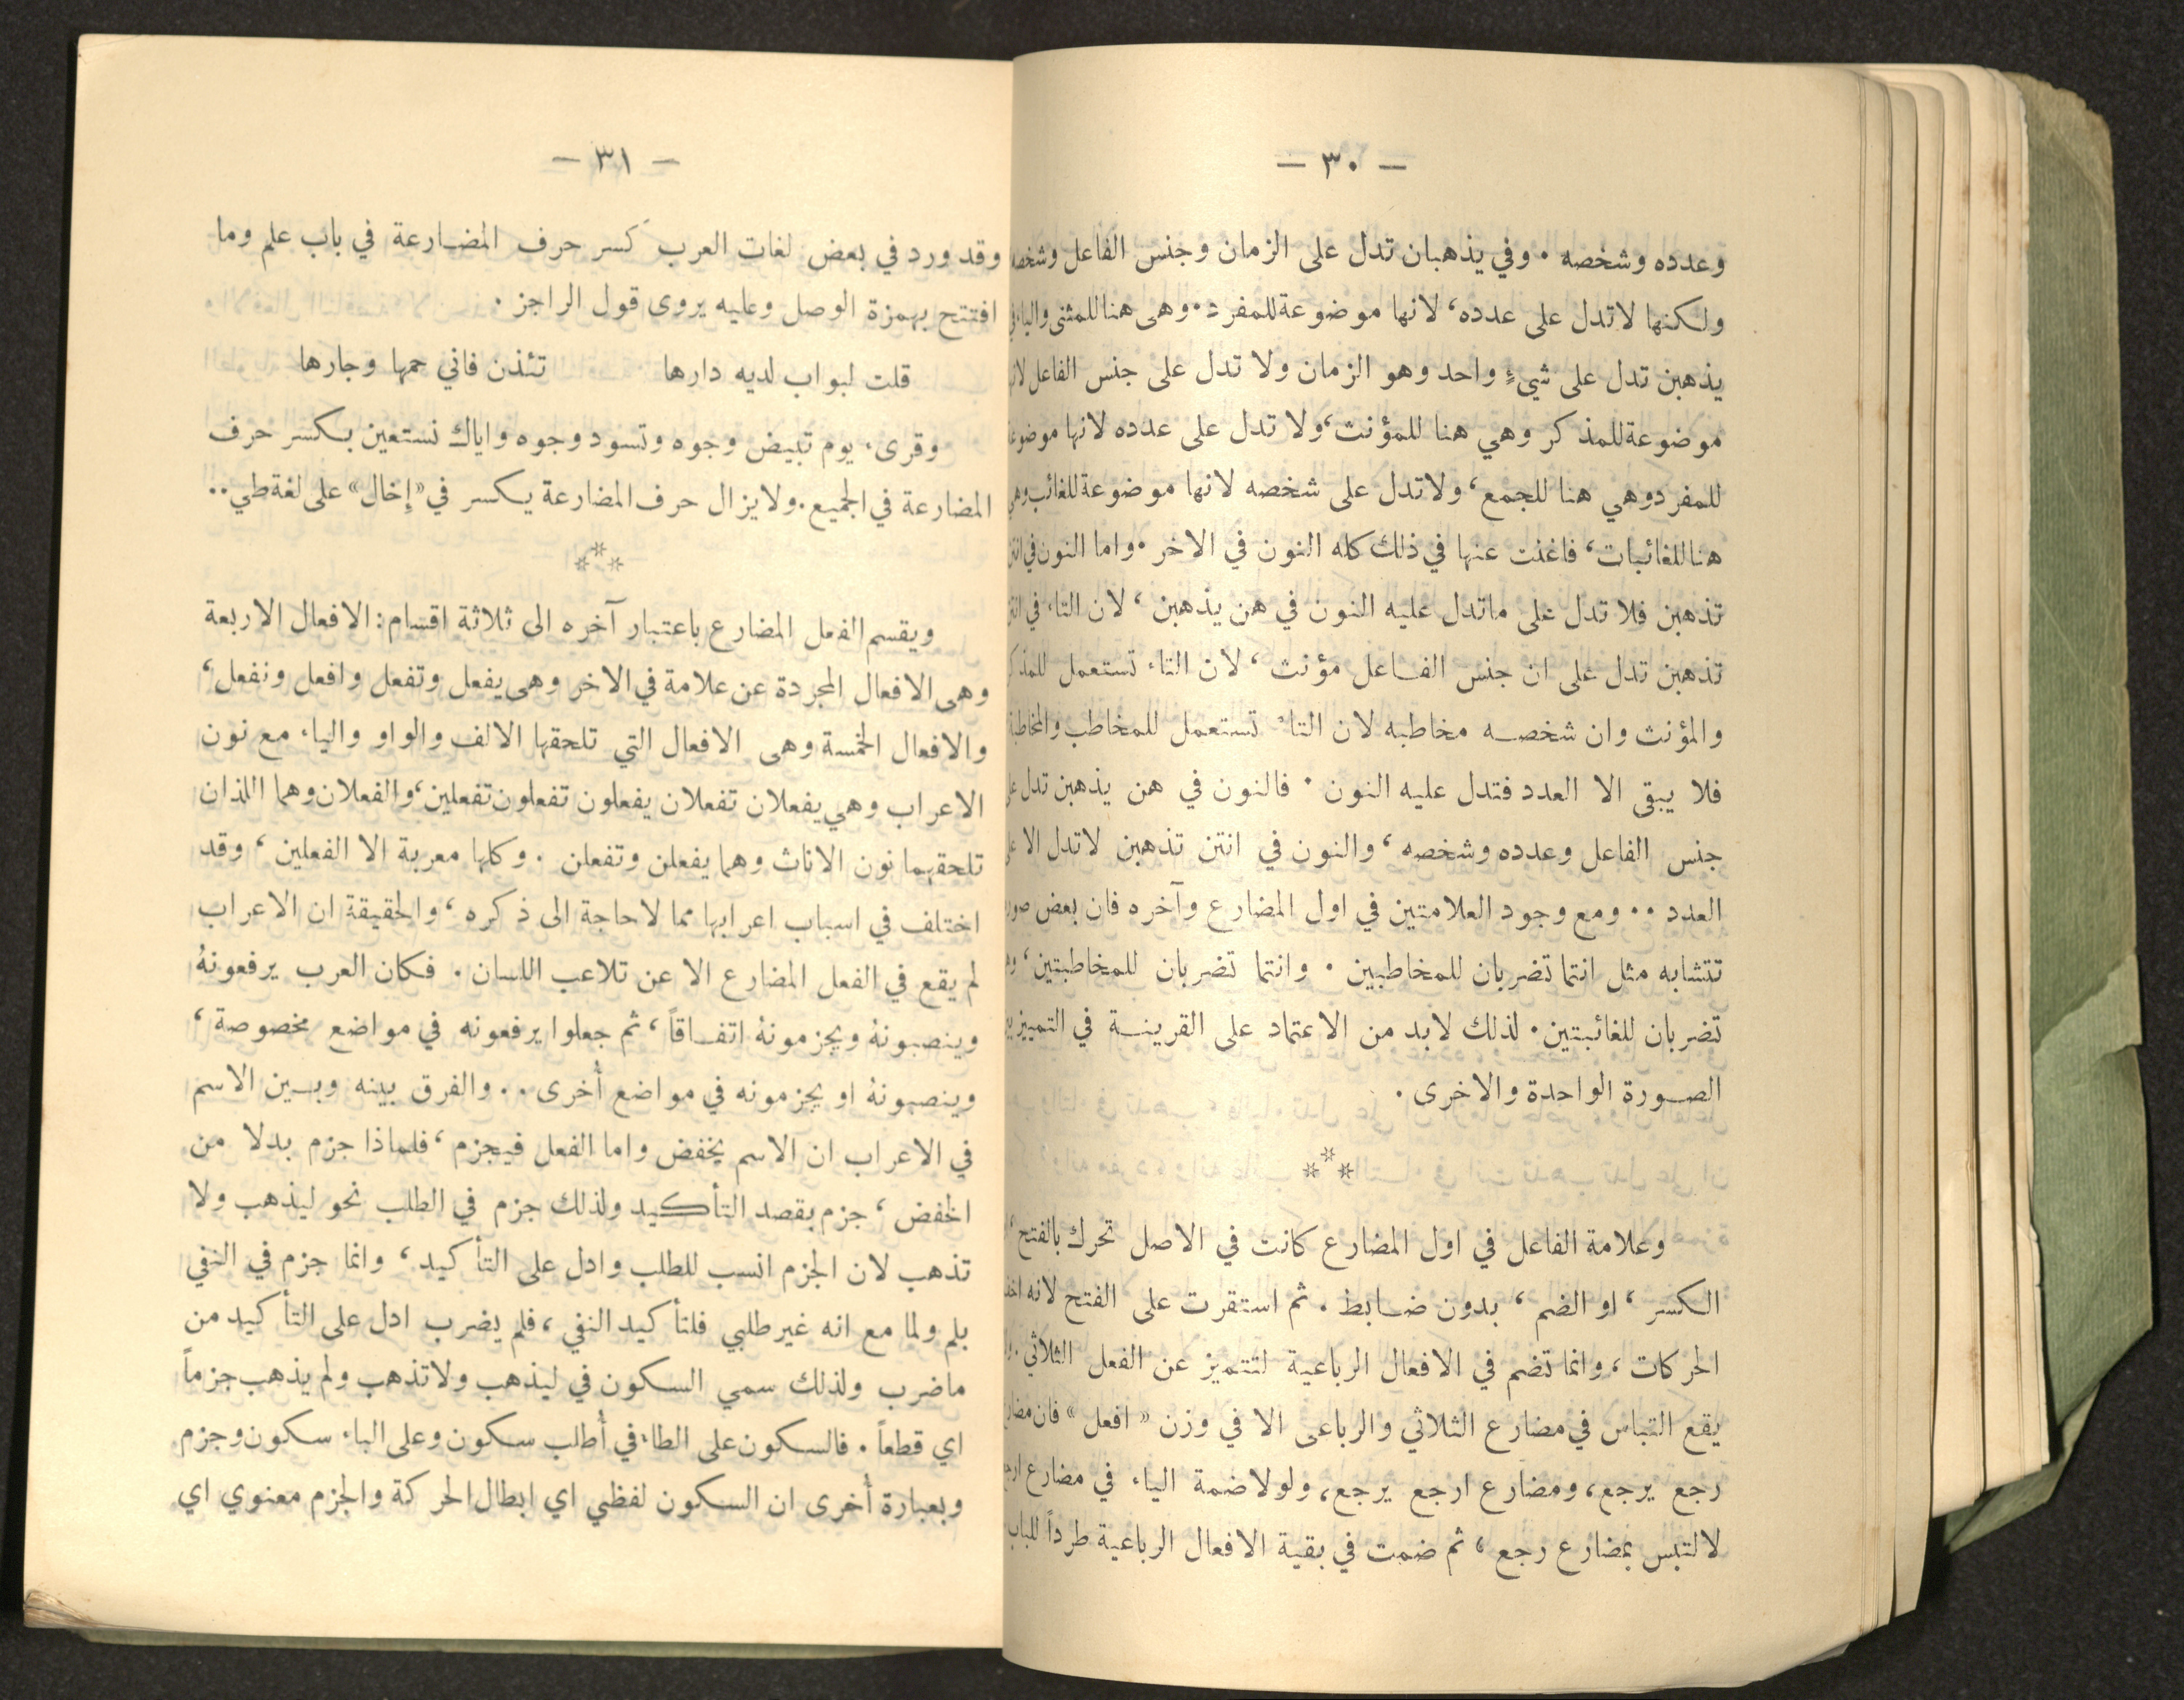 — ٣٠ —
وعدده وشخصه . وفي يذهبان تدل على الزمان وجنس الفاعل وشخصه
ولكنها لا تدل على عدده، لانها موضوعة للمفرد. وهى هنا للمثنى والياء في
يذهبن تدل على شيءٍ واحد وهو الزمان ولا تدل على جنس الفاعل لانها
موضوعة للمذكر وهي هنا للمؤنث، ولا تدل على عدده لانها موضوعة
للمفرد وهي هنا للجمع، ولا تدل على شخصه لانها موضوعة للغائب وهي
هنا للغائبات، فاغنت عنها في ذلك كله النون في الاخر . واما النون في انتن
تذهبن فلا تدل على ما تدل عليه النون في هن يذهبن ، لان التاء في انتن
تذهبن تدل على ان جنس الفاعل مؤنث ، لان التاء تستعمل للمذكر
والمؤنث وان شخصه مخاطبه لان التاء تستعمل للمخاطب والمخاطبة
فلا يبقى الا العدد فتدل عليه النون . فالنون في هن يذهبن تدل على
جنس الفاعل وعدده وشخصه ، والنون في انتن تذهبن لا تدل الا على
العدد .. ومع وجود العلامتين في اول المضارع وآخره فان بعض صوره
تتشابه مثل انتما تضربان للمخاطبين . وانتما تضربان للمخاطبتين ،
تضربان للغائبتين . لذلك لابد من الاعتماد على القرينة في التمييز بين
الصورة الواحدة والاخرى .
***
وعلامة الفاعل في اول المضارع كانت في الاصل تحرك بالفتح ،
الكسر ، او الضم ، بدون ضابط . ثم استقرت على الفتح لانه اخف
الحركات ، وانما تضم في الافعال الرباعية لتتميز عن الفعل الثلاثي .
يقع التباس في مضارع الثلاثي والرباعى الا في وزن « افعل » فان مضارع
رجع يرجع ، ومضارع ارجع يرجع ، ولولا ضمة الياء في مضارع ارجع
لالتبس بمضارع رجع ، ثم ضمت في بقية الافعال الرباعية طرداً للباب
— ٣١ —
وقد ورد في بعض لغات العرب كسر حرف المضارعة في باب علم وما
افتتح بهمزة الوصل وعليه يروى قول الراجز .
قلت لبواب لديه دارها تئذن فاني حمها وجارها
وقرىء يوم تبيض وجوه وتسود وجوه واياك نستعين بكسر حرف
المضارعة في الجميع . ولا يزال حرف المضارعة يكسر في «إخال» على لغة طي ..
***
ويقسم الفعل المضارع باعتبار آخره الى ثلاثة اقسام : الافعال الاربعة
وهى الافعال المجردة عن علامة في الاخر وهى يفعل وتفعل وافعل ونفعل ،
والافعال الخمسة وهى الافعال التي تلحقها الالف والواو والياء مع نون
الاعراب وهي يفعلان تفعلان يفعلون تفعلون تفعلين ، والفعلان وهما اللذان
تلحقهما نون الاناث وهما يفعلن وتفعلن . وكلها معربة الا الفعلين ، وقد
اختلف في اسباب اعرابها مما لا حاجة الى ذكره ، والحقيقة ان الاعراب
لم يقع في الفعل المضارع الا عن تلاعب اللسان . فكان العرب يرفعونهُ
وينصبونهُ ويجزمونهُ اتفاقاً ، ثم جعلوا يرفعونه في مواضع مخصوصة ،
وينصبونهُ او يجزمونه في مواضع أُخرى .. والفرق بينه وبين الاسم
في الاعراب ان الاسم يخفض واما الفعل فيجزم ، فلماذا جزم بدلا من
الخفض ، جزم بقصد التأكيد ولذلك جزم في الطلب نحو ليذهب ولا
تذهب لان الجزم انسب للطلب وادل على التأكيد ، وانما جزم في النفي
بلم ولما مع انه غير طلبي فلتأكيد النفي ، فلم يضرب ادل على التأكيد من
ماضرب ولذلك سمي السكون في ليذهب ولا تذهب ولم يذهب جزماً
اي قطعاً . فالسكون على الطاء في أُطلب سكون وعلى الباء سكون وجزم
وبعبارة أُخرى ان السكون لفظي اي ابطال الحركة والجزم معنوي اي